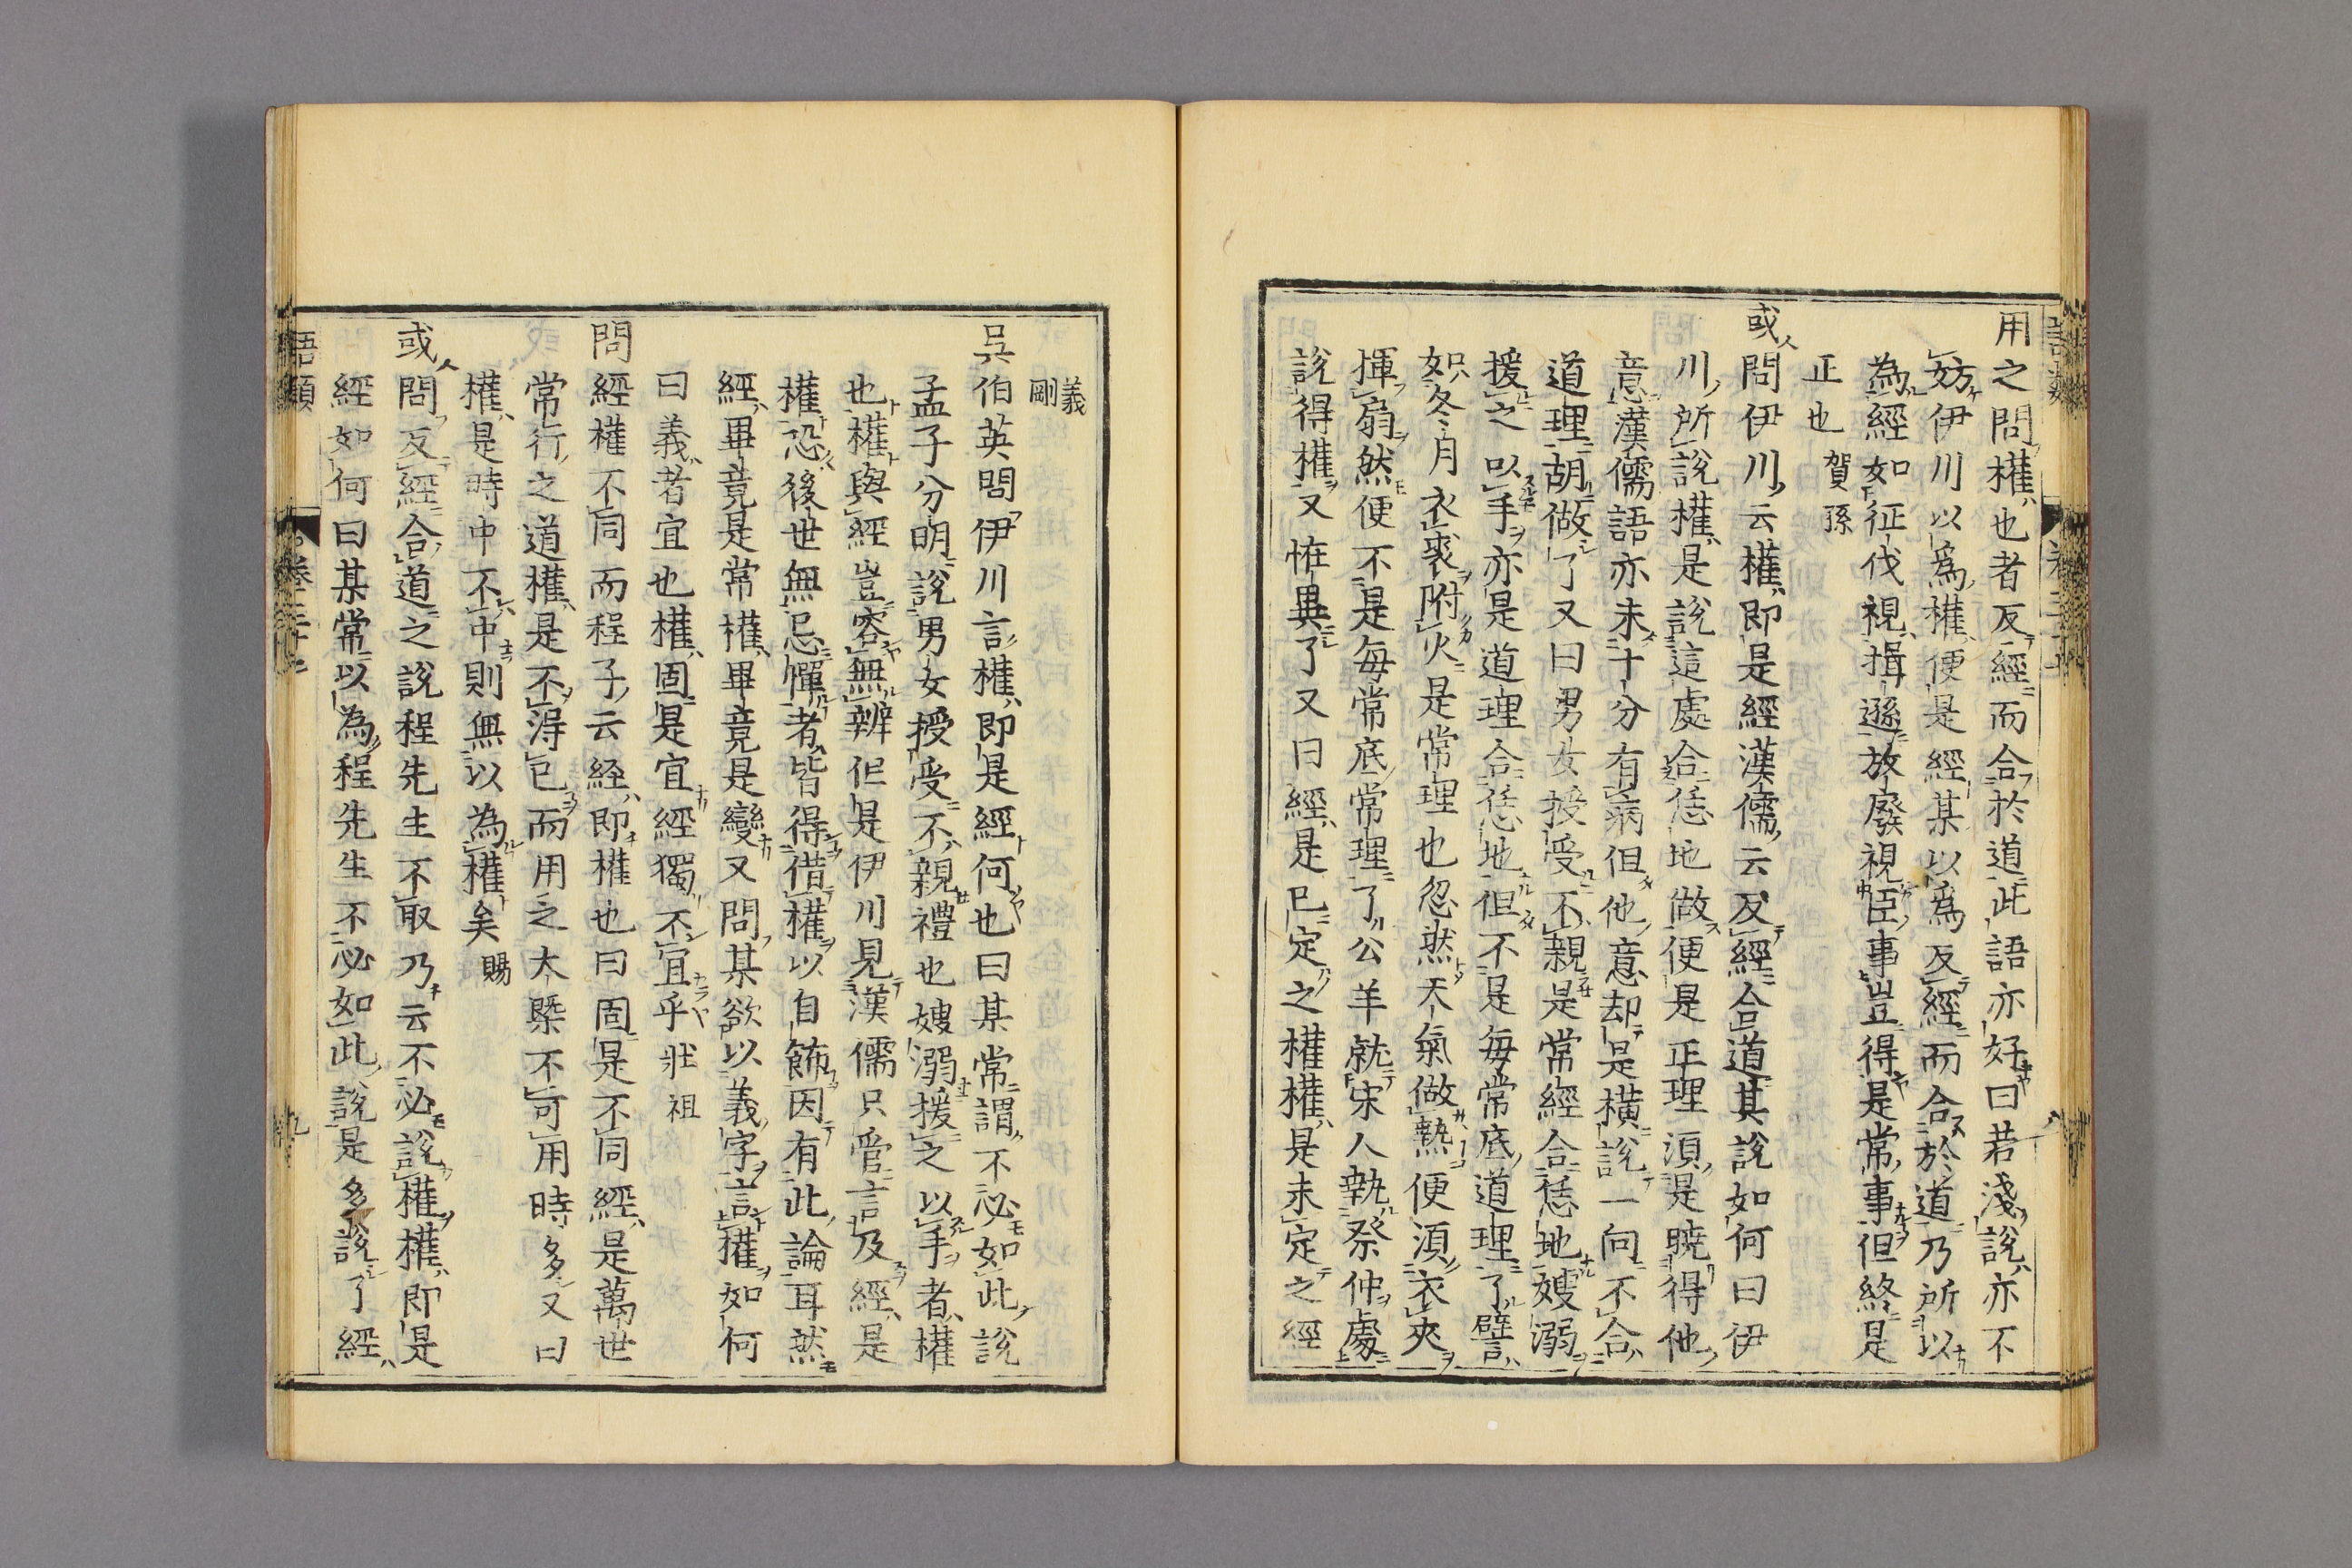 用之問權也者反經而合於道此語亦好曰若淺說亦不
妨伊川以爲權便是經某以爲反經而合於道乃所以
為經如征伐視揖遜放廢視臣事豈得是常事但終是
正也 賀孫
或問伊川云權即是經漢儒云反經合道其說如何曰伊
川所說權是說這處合恁地做便是正理須是曉得他
意漢儒語亦未十分有病但他意却是橫說一向不合
道理胡做了又曰男女授受不親是常經合恁地嫂溺
援之以手亦是道理合恁地但不是每常底道理了譬
如冬月衣裘附火是常理也忽然天氣做熱便須衣夾
揮扇然便不是每常底常理了公羊就宋人執祭仲處
說得權又怪異了又曰經是已定之權權是未定之經
義剛
吴伯英問伊川言權即是經何也曰某常謂不必如此說
孟子分明說男女授受不親禮也嫂溺援之以手者權
也權與經豈容無辨但是伊川見漢儒只管言反經是
權恐後世無忌憚者皆得借權以自飾因有此論耳然
經畢竟是常權畢竟是變又問某欲以義字言權如何
曰義者宜也權固是宜經獨不宜乎 壯祖
問經權不同而程子云經即權也曰固是不同經是萬世
常行之道權是不得已而用之大槩不可用時多又曰
權是時中不中則無以為權矣 賜
或問反經合道之說程先生不取乃云不必說權權即是
經如何曰某常以為程先生不必如此說是多說了經
語類 卷三十七 九